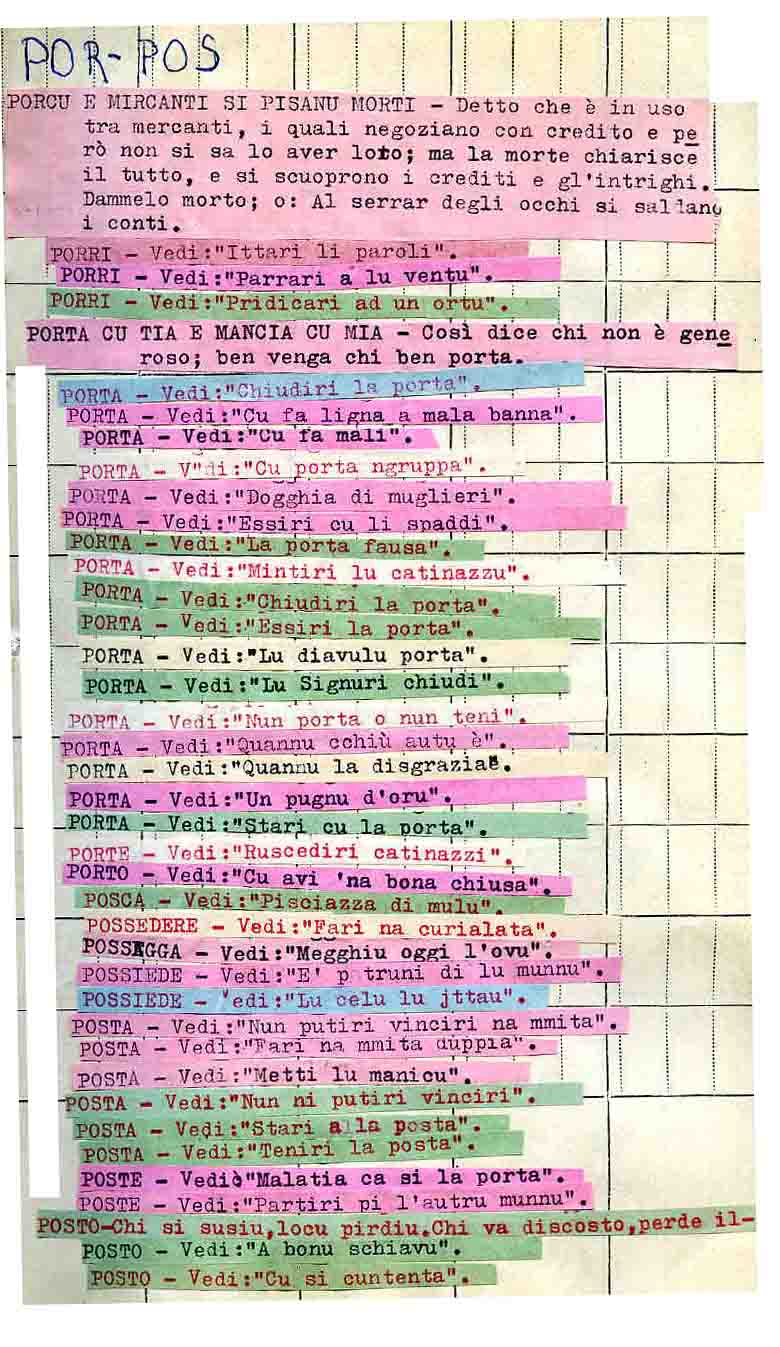 POR-POS
PORCU E MIRCANTI SI PISANU MORTI - Detto che è in uso
tra mercanti, i quali negoziano con credito e pe
rò non si sa lo aver loro; ma la morte chiarisce
il tutto, e si scuoprono i crediti e gl'intrighi.
Dammelo morto; o: Al serrar degli occhi si saldano
i conti.
PORRI - Vedi:"Ittari li paroli".
PORRI - Vedi:"Parrari a lu ventu".
PORRI - Vedi:"Pridicari ad un ortu".
PORTA CU TIA E MANCIA CU MIA - Così dice chi non è gene
roso; ben venga chi ben porta.
PORTA - Vedi:"Chiudiri la porta".
PORTA - Vedi:"Cu fa ligna a mala banna".
PORTA - Vedi:"Cu fa mali".
PORTA - V"di:"Cu porta ngruppa".
PORTA - Vedi:"Dogghia di muglieri".
PORTA - Vedi:"Essiri cu li spaddi".
PORTA - Vedi:"La porta fausa".
PORTA - Vedi:"Mintiri lu catinazzu".
PORTA - Vedi:"Chiudiri la porta".
PORTA - Vedi:"Essiri la porta".
PORTA - Vedi:"Lu diavulu porta".
PORTA - Vedi:"Lu Signuri chiudi".
PORTA - Vedi:"Nun porta o nun teni".
PORTA - Vedi:"Quannu cchiù autu è".
PORTA - Vedi:"Quannu la disgrazia".
PORTA - Vedi:"Un pugnu d'oru".
PORTA - Vedi:"Stari cu la porta".
PORTE - Vedi:"Ruscediri catinazzi".
PORTO - Vedi:"Cu avi 'na bona chiusa".
POSCA - Vedi:"Pisciazza di mulu".
POSSEDERE - Vedi:"Fari na curialata".
POSSEGGA - Vedi:"Megghiu oggi l'ovu".
POSSIEDE - Vedi:"E' p truni di lu munnu".
POSSIEDE - Vedi:"Lu celu lu jttau".
POSTA - Vedi:"Nun putiri vinciri na mmita".
POSTA - Vedi:"Fari na mmita duppia".
POSTA - Vedi:"Metti lu manicu".
POSTA - Vedi:"Nun ni putiri vinciri".
POSTA - Vedi:"Stari a la posta".
POSTA - Vedi:"Teniri la posta".
POSTE - Vediò"Malatia ca si la porta".
POSTE - Vedi:"Partiri pi l'autru munnu".
POSTO-Chi si susiu,locu pirdiu.Chi va discosto,perde il-
POSTO - Vedi:"A bonu schiavu".
POSTO - Vedi:"Cu si cuntenta".